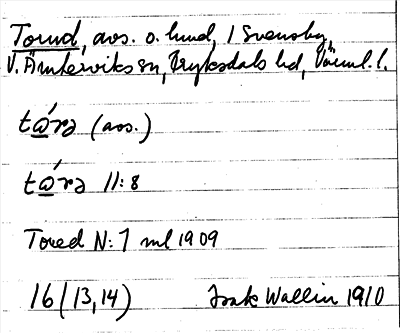 Torud, avs. o. lund, i Svensby,
V. Ämterviks sn, Fryksdals hd, Värml. l.
tώrə (avs.)
tώrə 11:8
Tored N:1 ml 1909
16 (13, 14) Isak Wallin 1910